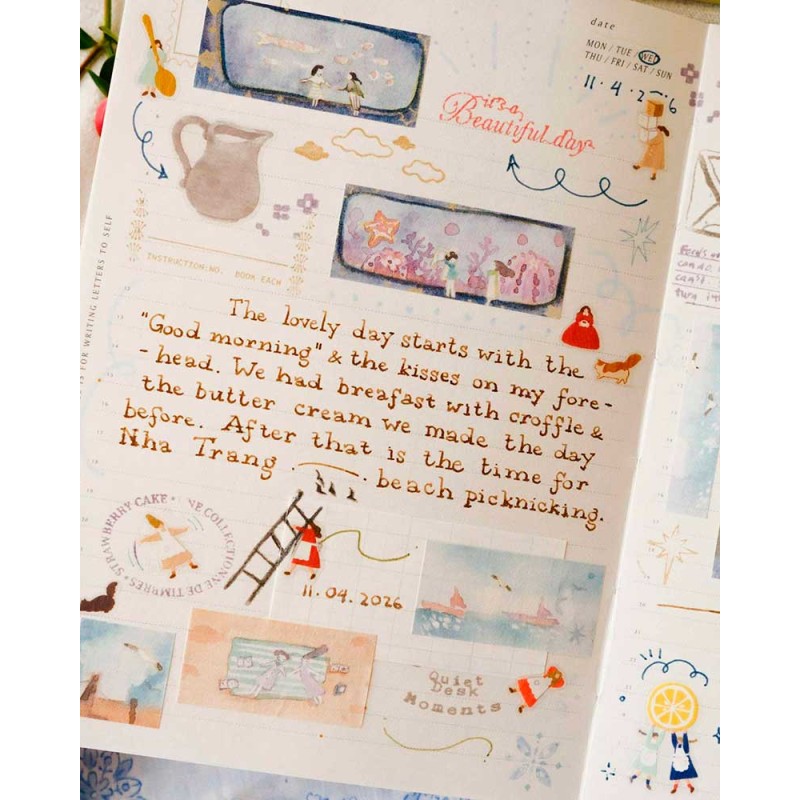 date
MON / TUE / WED
THU / FRI / SAT / SUN
11 · 4 · 2 6
it's a
Beautiful day
INSTRUCTION:NO. BOOK-EACH
IS FOR WRITING LETTERS TO SELF
The lovely day starts with the
"Good morning" & the kisses on my fore-
-head. We had breafast with croffle &
the butter cream we made the day
before. After that is the time for
Nha Trang . . beach picknicking.
STRAWBERRY CAKE · NE COLLECTION DE TIMBRES ·
11. 04. 2026
Quiet
Desk
Moments